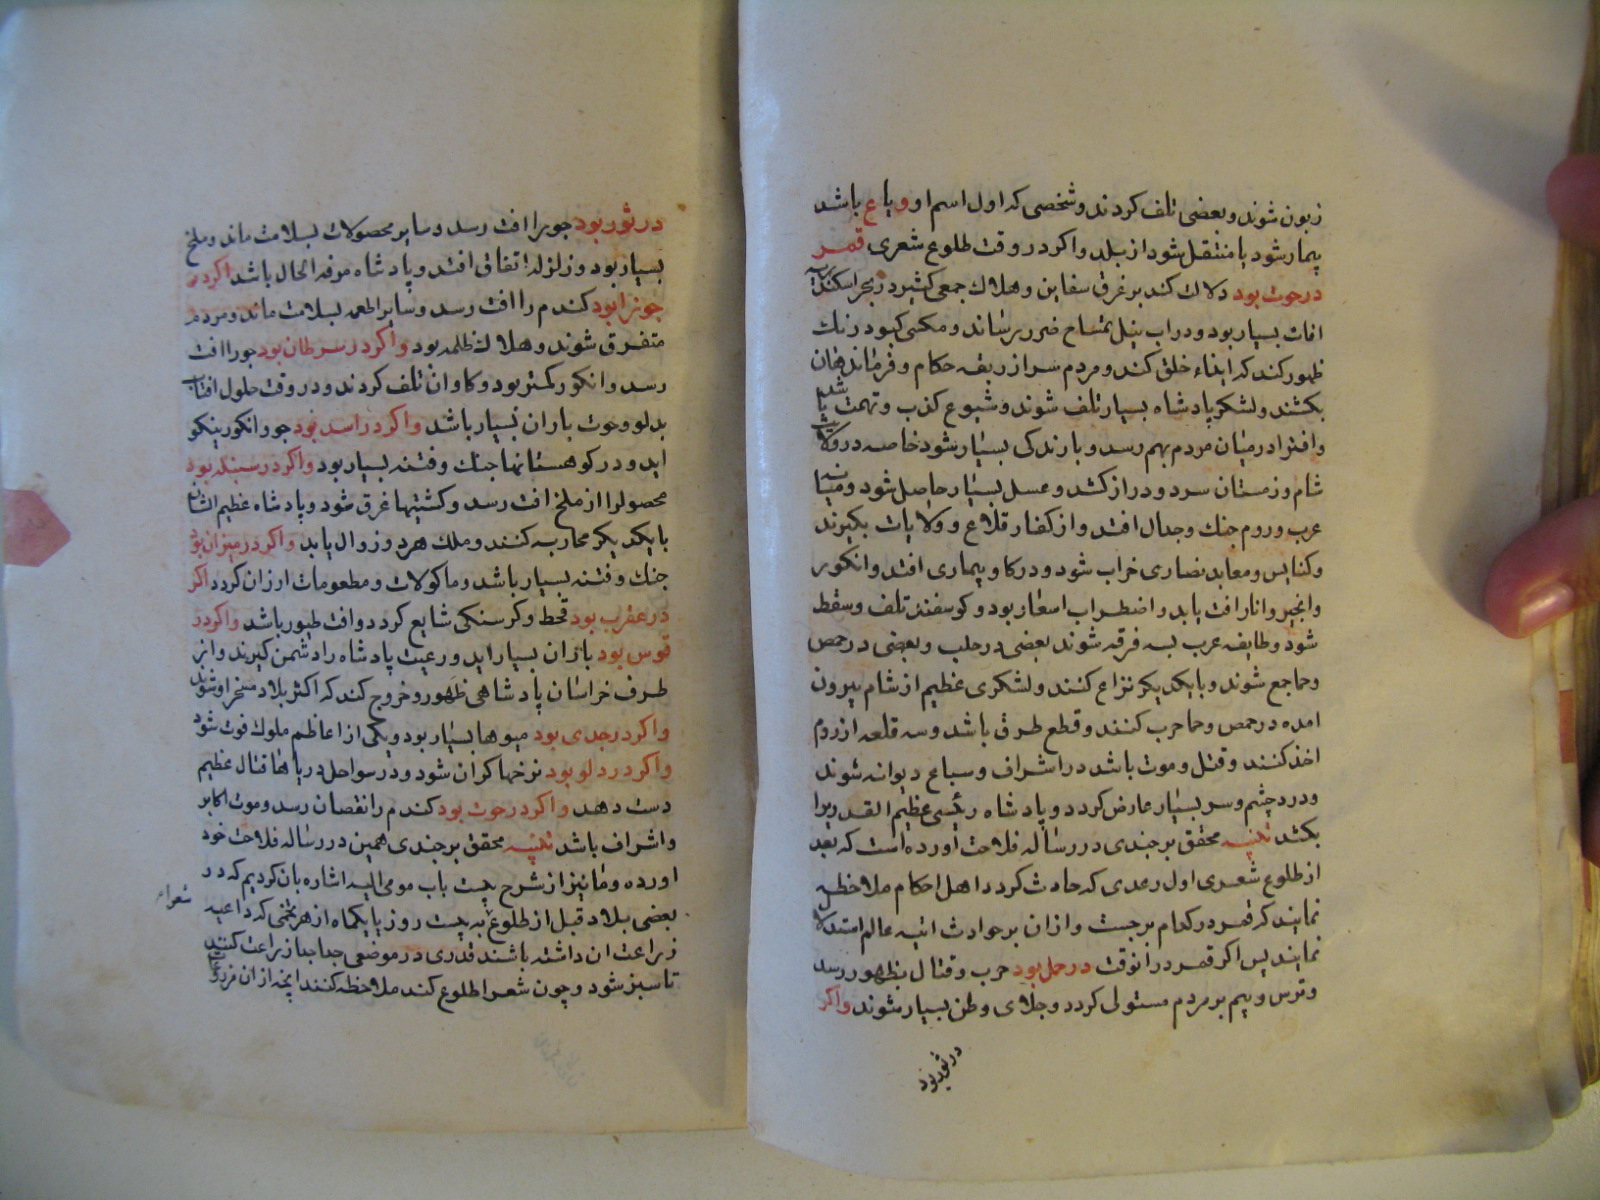 زبون شوند و بعضی تلف کردند و شخصی که اول اسم او و یا ع باشد
بیمار شود یا منتقل شود از بلد و اکر در وقت طلوع شعری قمر
در حوت بود دلالت کند بر غرق سفاین و هلاک جمعی کثیر و در بحر اسکندریه
افات بسیار بود و در اب نیل تمساح ضرر رساند و مکسی کبود رنک
ظهور کند که ایذاء خلق کند و مردم سر از ربقه حکام و فرماندهان
بکشند و لشکر پادشاه بسیار تلف شوند و شیوع کذب و تهمت باشد
و افترا در میان مردم بهم رسد و بارندکی بسیار شود خاصه در ولایت
شام و زمستان سرد و دراز کشد و عسل بسیار حاصل شود و میانه
عرب و روم جنک و جدال افتد و از کفار قلاع و ولایات بکیرند
و کنایس و معابد نصاری خراب شود و در کاو بیماری افتد و انکور
و انجیر و انار افت یابد و اضطراب اسعار بود و کوسفند تلف و سقط
شود و طایفه عرب بسه فرقه شوند بعضی در حلب و بعضی در حمص
و حما جمع شوند و با یکدیکر نزاع کنند و لشکری عظیم از شام بیرون
امده در حمص و حما حرب کنند و قطع طرق باشد و سه قلعه از روم
اخذ کنند و قتل و موت باشد در اشراف و سباع دیوانه شوند
و درد چشم و سر بسیار عارض کردد و پادشاه رئیسی عظیم القدر را
بکشد تنبیه محقق برجندی در رساله فلاحت اورده است که بعد
از طلوع شعری اول رعدی که حادث کردد اهل احکام ملاحظه
نمایند که قمر در کدام برجست و از ان بر حوادث اتیه عالم استدلال
نمایند پس اکر قمر در انوقت در حمل بود حرب و قتال بظهور رسد
و ترس و بیم بر مردم مستولی کردد و جلای وطن بسیار شوند و اکر
در ثور بود
در ثور بود جو را افت رسد و سایر محصولات بسلامت ماند و ملخ
بسیار بود و زلزله اتفاق افتد و پادشاه مرفه الحال باشد اکر در
جوزا بود کندم را افت رسد و سایر اطعمه بسلامت ماند و مردم
متفرق شوند و هلاک ظلمه بود و اکر در سرطان بود جو را افت
رسد و انکور کمتر بود و کاوان تلف کردند و در وقت حلول افتاب
بدلو و حوت باران بسیار باشد و اکر در اسد بود جو و انکور نیکو
اید و در کوهستانها جنک و فتنه بسیار بود و اکر در سنبله بود
محصول را از ملخ افت رسد و کشتیها غرق شود و پادشاه عظیم الشان
با یکدیکر محاربه کنند و ملک هر دو زوال یابد و اکر در میزان بود
جنک و فتنه بسیار باشد و ماکولات و مطعومات ارزان کردد اکر
در عقرب بود قحط و کرسنکی شایع کردد و افت طیور باشد و اکر در
قوس بود باران بسیار اید و رعیت پادشاه را دشمن کیرند و از
طرف خراسان پادشاهی ظهور و خروج کند که اکثر بلاد مسخر او شوند
و اکر در جدی بود میوها بسیار بود و یکی از اعاظم ملوک فوت شود
و اکر در دلو بود نرخها کران شود و در سواحل دریاها قتال عظیم
دست دهد و اکر در حوت بود کندم را نقصان رسد و موت اکابر
و اشراف باشد تنبیه محقق برجندی همین در رساله فلاحت خود
اورده و ما نیز از شرح بیست باب مومی الیه اشاره بان کردیم که در
بعضی بلاد قبل از طلوع به بیست روز یا یکماه از هر تخمی که داعیه
شعراء
زراعت ان داشته باشند قدری در موضعی جدا جدا زراعت کنند
تا سبز شود و چون شعرا طلوع کند ملاحظه کنند انچه از ان مزروعات